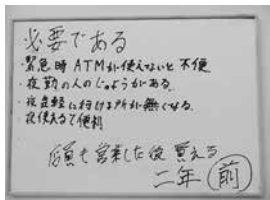 必要である
・緊急時ATMが使えないと不便
・夜勤の人のじゅようがある。
・夜気軽に行ける所が無くなる。
・夜使えて便利
店員も営業した後買える
二年 前